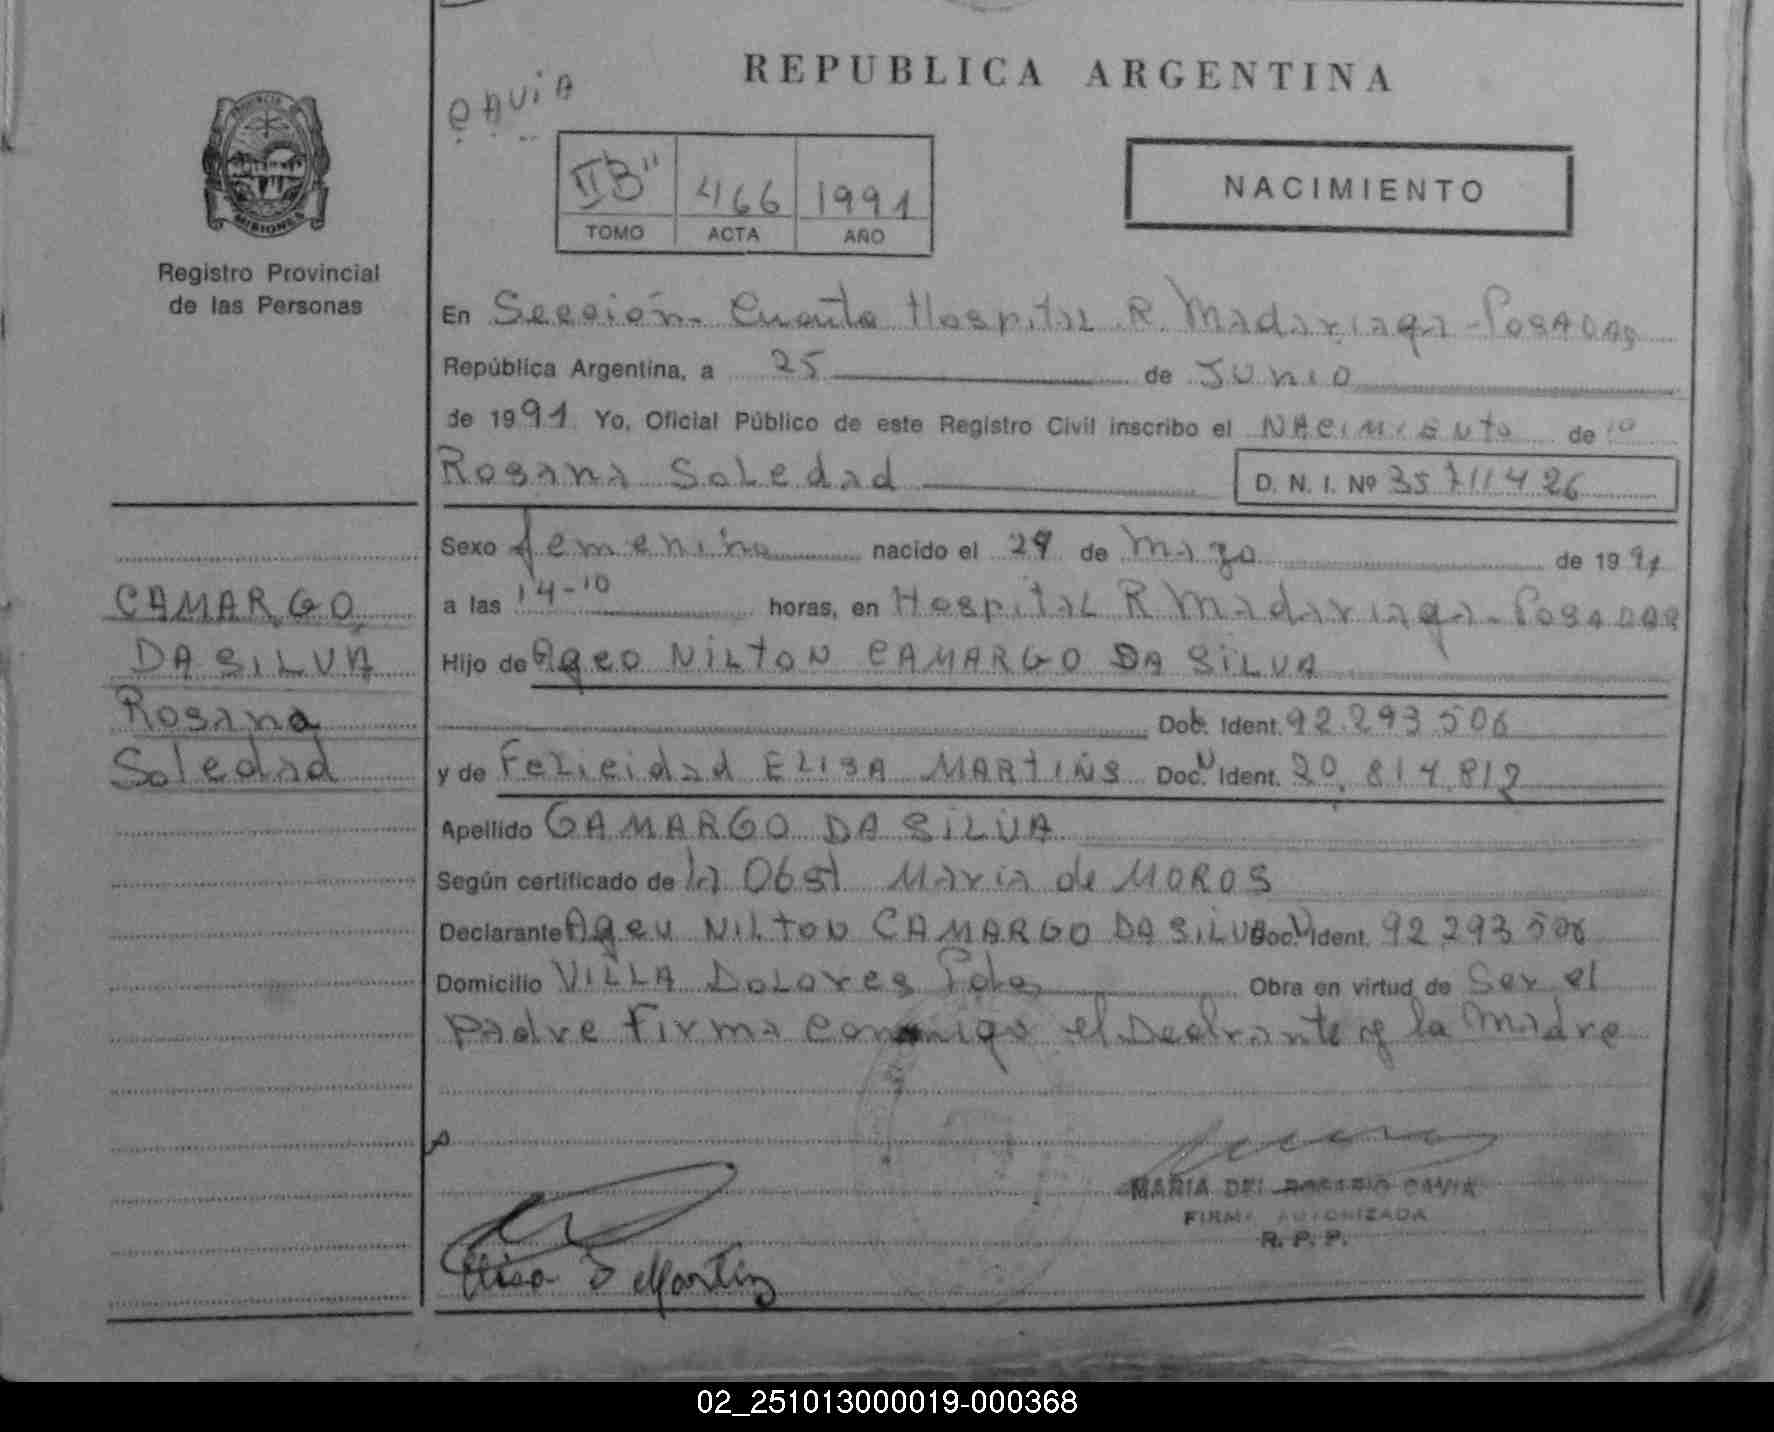 REPUBLICA ARGENTINA
CAVIA
II"B" 466 1991
TOMO ACTA AÑO
NACIMIENTO
MISIONES
Registro Provincial
de las Personas
En Sección Cuarta Hospital R. Madariaga - Posadas
República Argentina, a 25 de Junio
de 1991 Yo, Oficial Público de este Registro Civil inscribo el Nacimiento de
Rosana Soledad D. N. I. Nº 35711426
Sexo femenino nacido el 29 de Mayo de 1991
a las 14-10 horas, en Hospital R Madariaga - Posadas
Hijo de Ageo NILTON CAMARGO DA SILVA
Doc. Ident. 92.293.506
y de Felicidad ELISA MARTINS Doc. Ident. 20.814.812
Apellido CAMARGO DA SILVA
Según certificado de la Obst Maria de MOROS
Declarante Ageu NILTON CAMARGO DA SILVA Doc. Ident. 92 293 506
Domicilio VILLA Dolores Pdas Obra en virtud de Ser el
padre Firma conmigo el Declrante y la Madre
CAMARGO
DA SILVA
Rosana
Soledad
MARIA DEL ROSARIO CAVIA
FIRMA AUTORIZADA
R. P. P.
Elisa F Martins
02_251013000019-000368